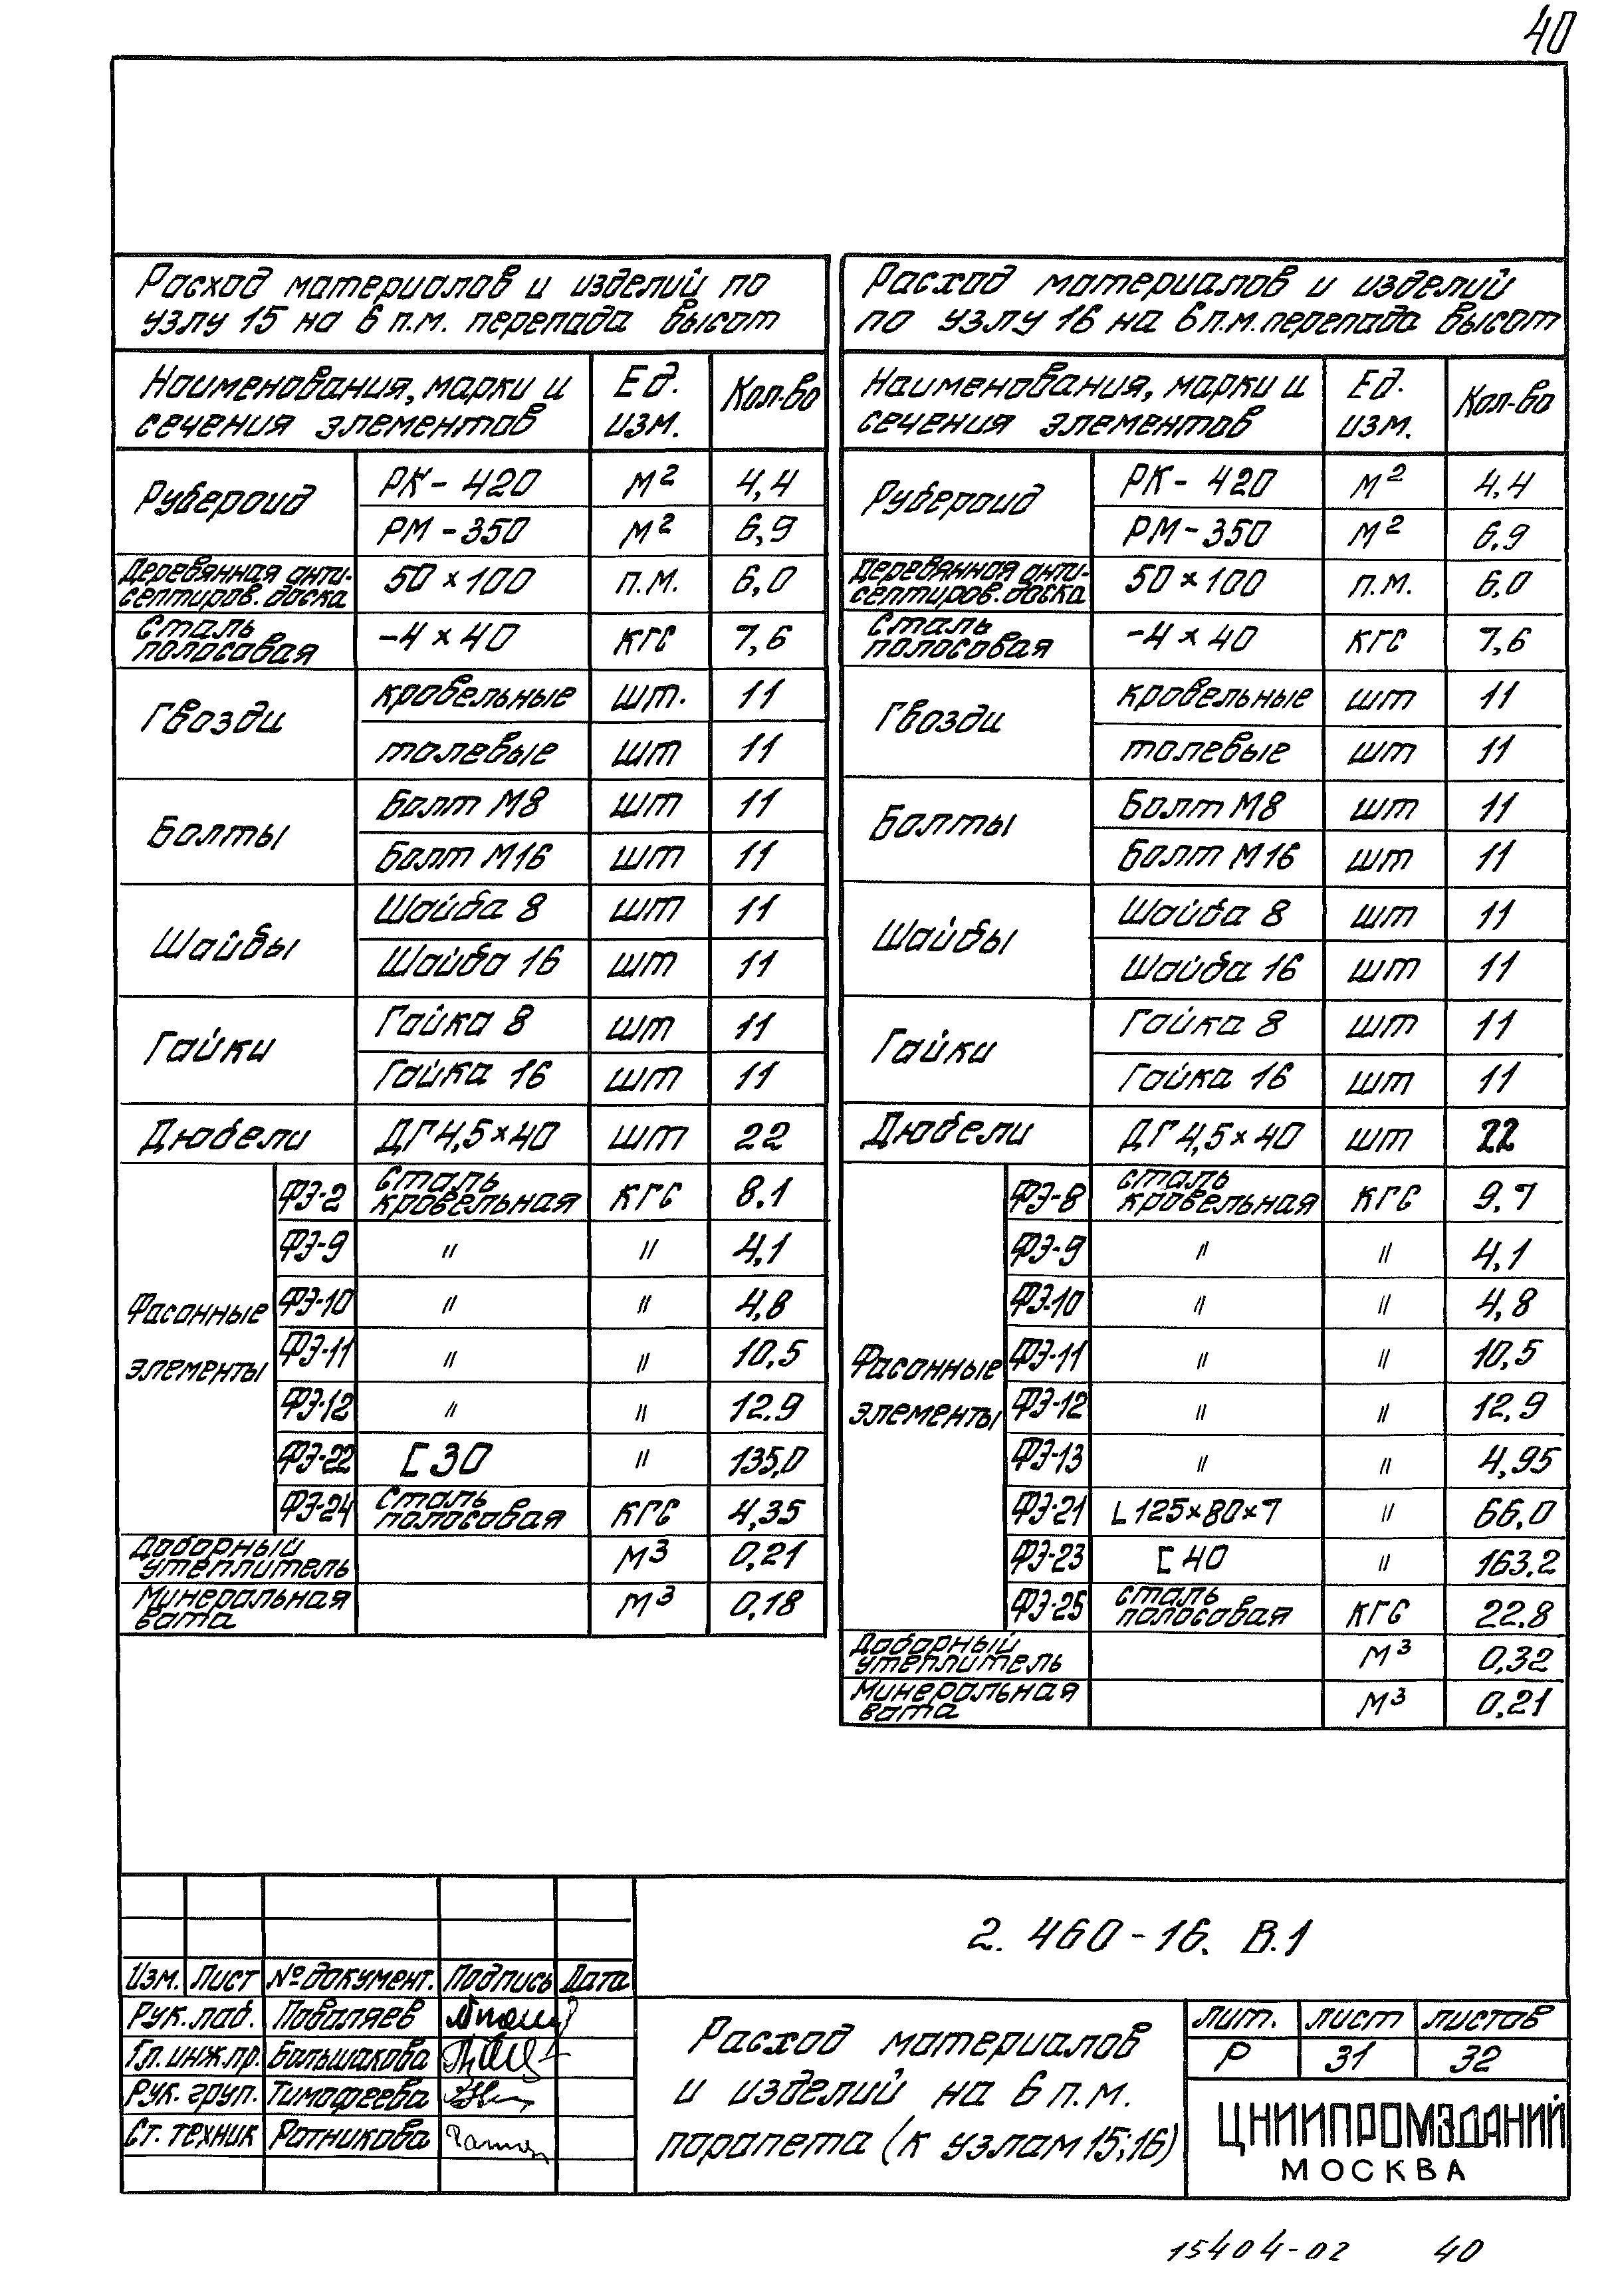 40
Расход материалов и изделий по
узлу 15 на 6 п.м. перепада высот
Наименования, марки и
сечения элементов
Ед.
изм.
Кол-во
Рубероид
РК - 420 м² 4,4
РМ - 350 м² 6,9
Деревянная анти-
септиров. доска
50 × 100 п.м. 6,0
Сталь
полосовая
-4 × 40 кгс 7,6
Гвозди
кровельные шт. 11
толевые шт 11
Болты
Болт М8 шт 11
Болт М16 шт 11
Шайбы
Шайба 8 шт 11
Шайба 16 шт 11
Гайки
Гайка 8 шт 11
Гайка 16 шт 11
Дюбели ДГ 4,5×40 шт 22
Фасонные
элементы
ФЭ-2 сталь
кровельная
кгс 8.1
ФЭ-9 " " 4,1
ФЭ-10 " " 4,8
ФЭ-11 " " 10,5
ФЭ-12 " " 12.9
ФЭ-22 [ 30 " 135,0
ФЭ-24 Сталь
полосовая
кгс 4,35
Доборный
утеплитель
м³ 0,21
Минеральная
вата
м³ 0,18
Расход материалов и изделий
по узлу 16 на 6 п.м. перепада высот
Наименования, марки и
сечения элементов
Ед.
изм.
Кол-во
Рубероид
РК - 420 м² 4,4
РМ - 350 м² 6,9
Деревянная анти-
септиров. доска
50 × 100 п.м. 6,0
Сталь
полосовая
-4 × 40 кгс 7,6
Гвозди
кровельные шт 11
толевые шт 11
Болты
Болт М8 шт 11
Болт М16 шт 11
Шайбы
Шайба 8 шт 11
Шайба 16 шт 11
Гайки
Гайка 8 шт 11
Гайка 16 шт 11
Дюбели ДГ 4,5×40 шт 22
Фасонные
элементы
ФЭ-8 сталь
кровельная
кгс 9,7
ФЭ-9 " " 4,1
ФЭ-10 " " 4,8
ФЭ-11 " " 10,5
ФЭ-12 " " 12,9
ФЭ-13 " " 4,95
ФЭ-21 L 125×80×7 " 66,0
ФЭ-23 [ 40 " 163,2
ФЭ-25 сталь
полосовая
кгс 22.8
Доборный
утеплитель
м³ 0,32
Минеральная
вата
м³ 0,21
Изм. Лист № документ. Подпись Дата
Рук. лаб. Поваляев
Гл. инж. пр. Большакова
Рук. груп. Тимофеева
Ст. техник Ротникова
2. 460 - 16. В.1
Расход материалов
и изделий на 6 п.м.
парапета (к узлам 15; 16)
лит. лист листов
Р 31 32
ЦНИИПРОМЗДАНИЙ
МОСКВА
15404-02 40